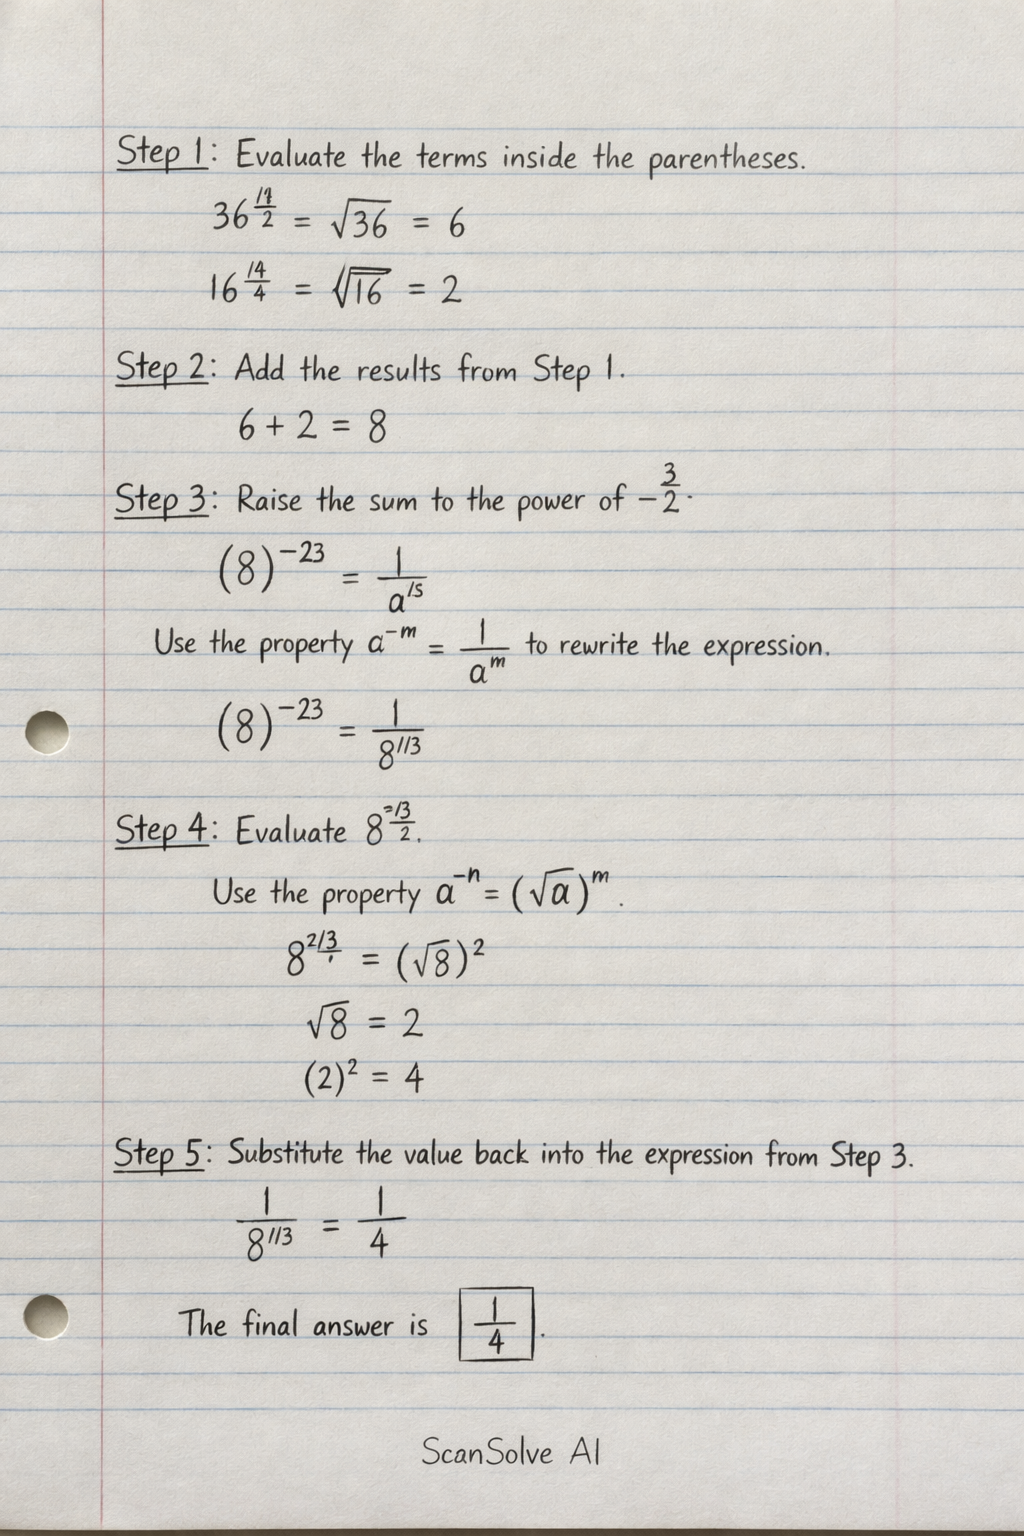 Step 1: Evaluate the terms inside the parentheses.
36^{\frac{14}{2}} = \sqrt{36} = 6
16^{\frac{14}{4}} = \sqrt{16} = 2
Step 2: Add the results from Step 1.
6 + 2 = 8
Step 3: Raise the sum to the power of -\frac{3}{2}.
(8)^{-23} = \frac{1}{a^{15}}
Use the property a^{-m} = \frac{1}{a^{m}} to rewrite the expression.
(8)^{-23} = \frac{1}{8^{1/3}}
Step 4: Evaluate 8^{\frac{=/3}{2}}.
Use the property a^{-n} = (\sqrt{a})^{m}.
8^{2/3} = (\sqrt{8})^{2}
\sqrt{8} = 2
(2)^{2} = 4
Step 5: Substitute the value back into the expression from Step 3.
\frac{1}{8^{1/3}} = \frac{1}{4}
The final answer is \frac{1}{4}.
ScanSolve AI